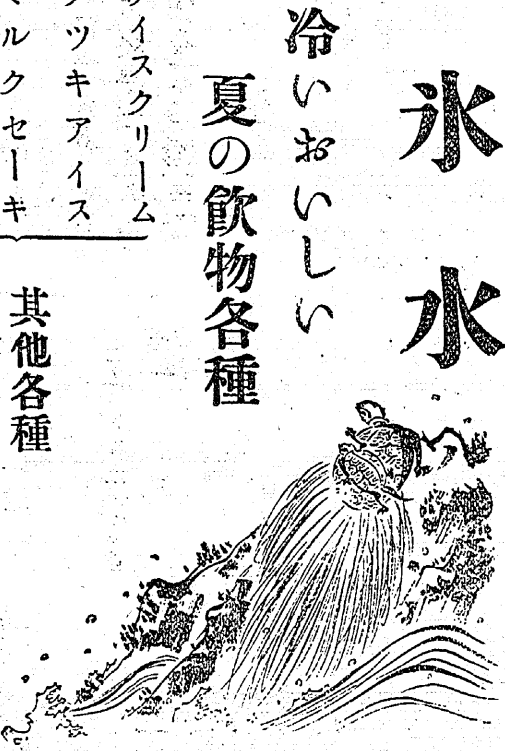 氷水
冷いおいしい
夏の飲物各種
アイスクリーム
ツキアイス
ミルクセーキ
其他各種